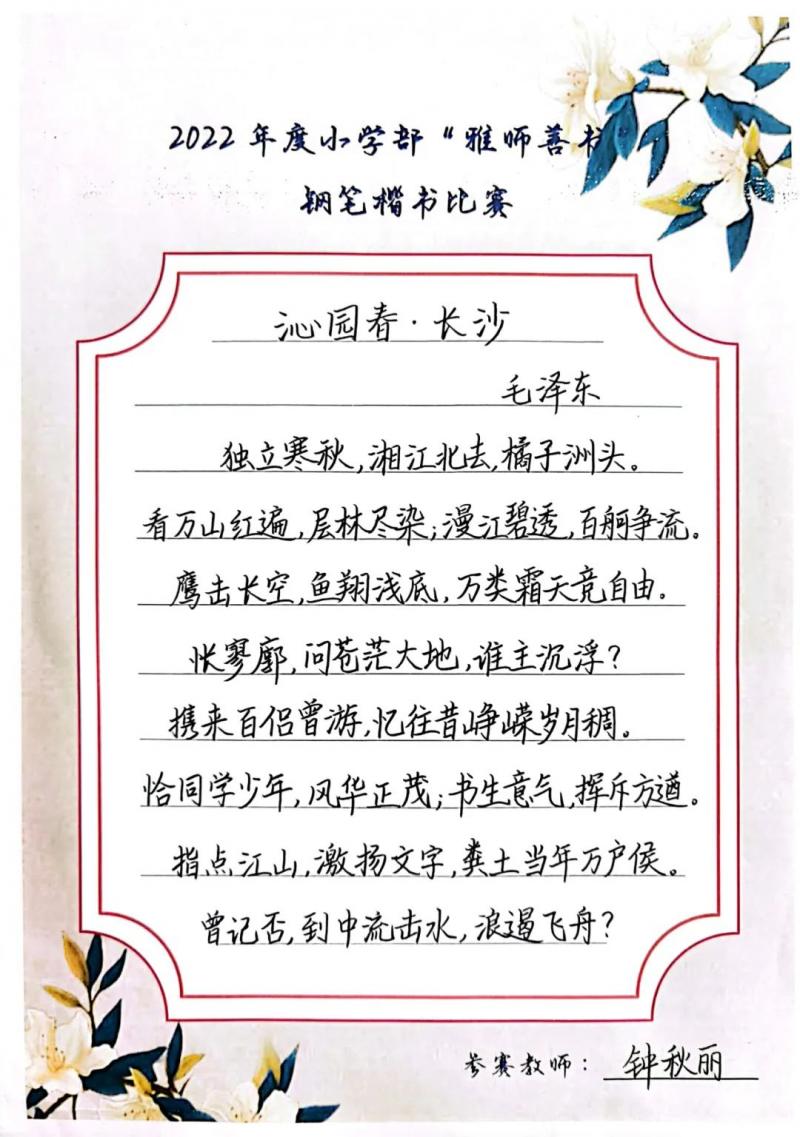 2022年度小学部“雅师善书
钢笔楷书比赛
沁园春·长沙
毛泽东
独立寒秋,湘江北去,橘子洲头。
看万山红遍,层林尽染;漫江碧透,百舸争流。
鹰击长空,鱼翔浅底,万类霜天竞自由。
怅寥廓,问苍茫大地,谁主沉浮?
携来百侣曾游,忆往昔峥嵘岁月稠。
恰同学少年,风华正茂;书生意气,挥斥方遒。
指点江山,激扬文字,粪土当年万户侯。
曾记否,到中流击水,浪遏飞舟?
参赛教师:钟秋丽